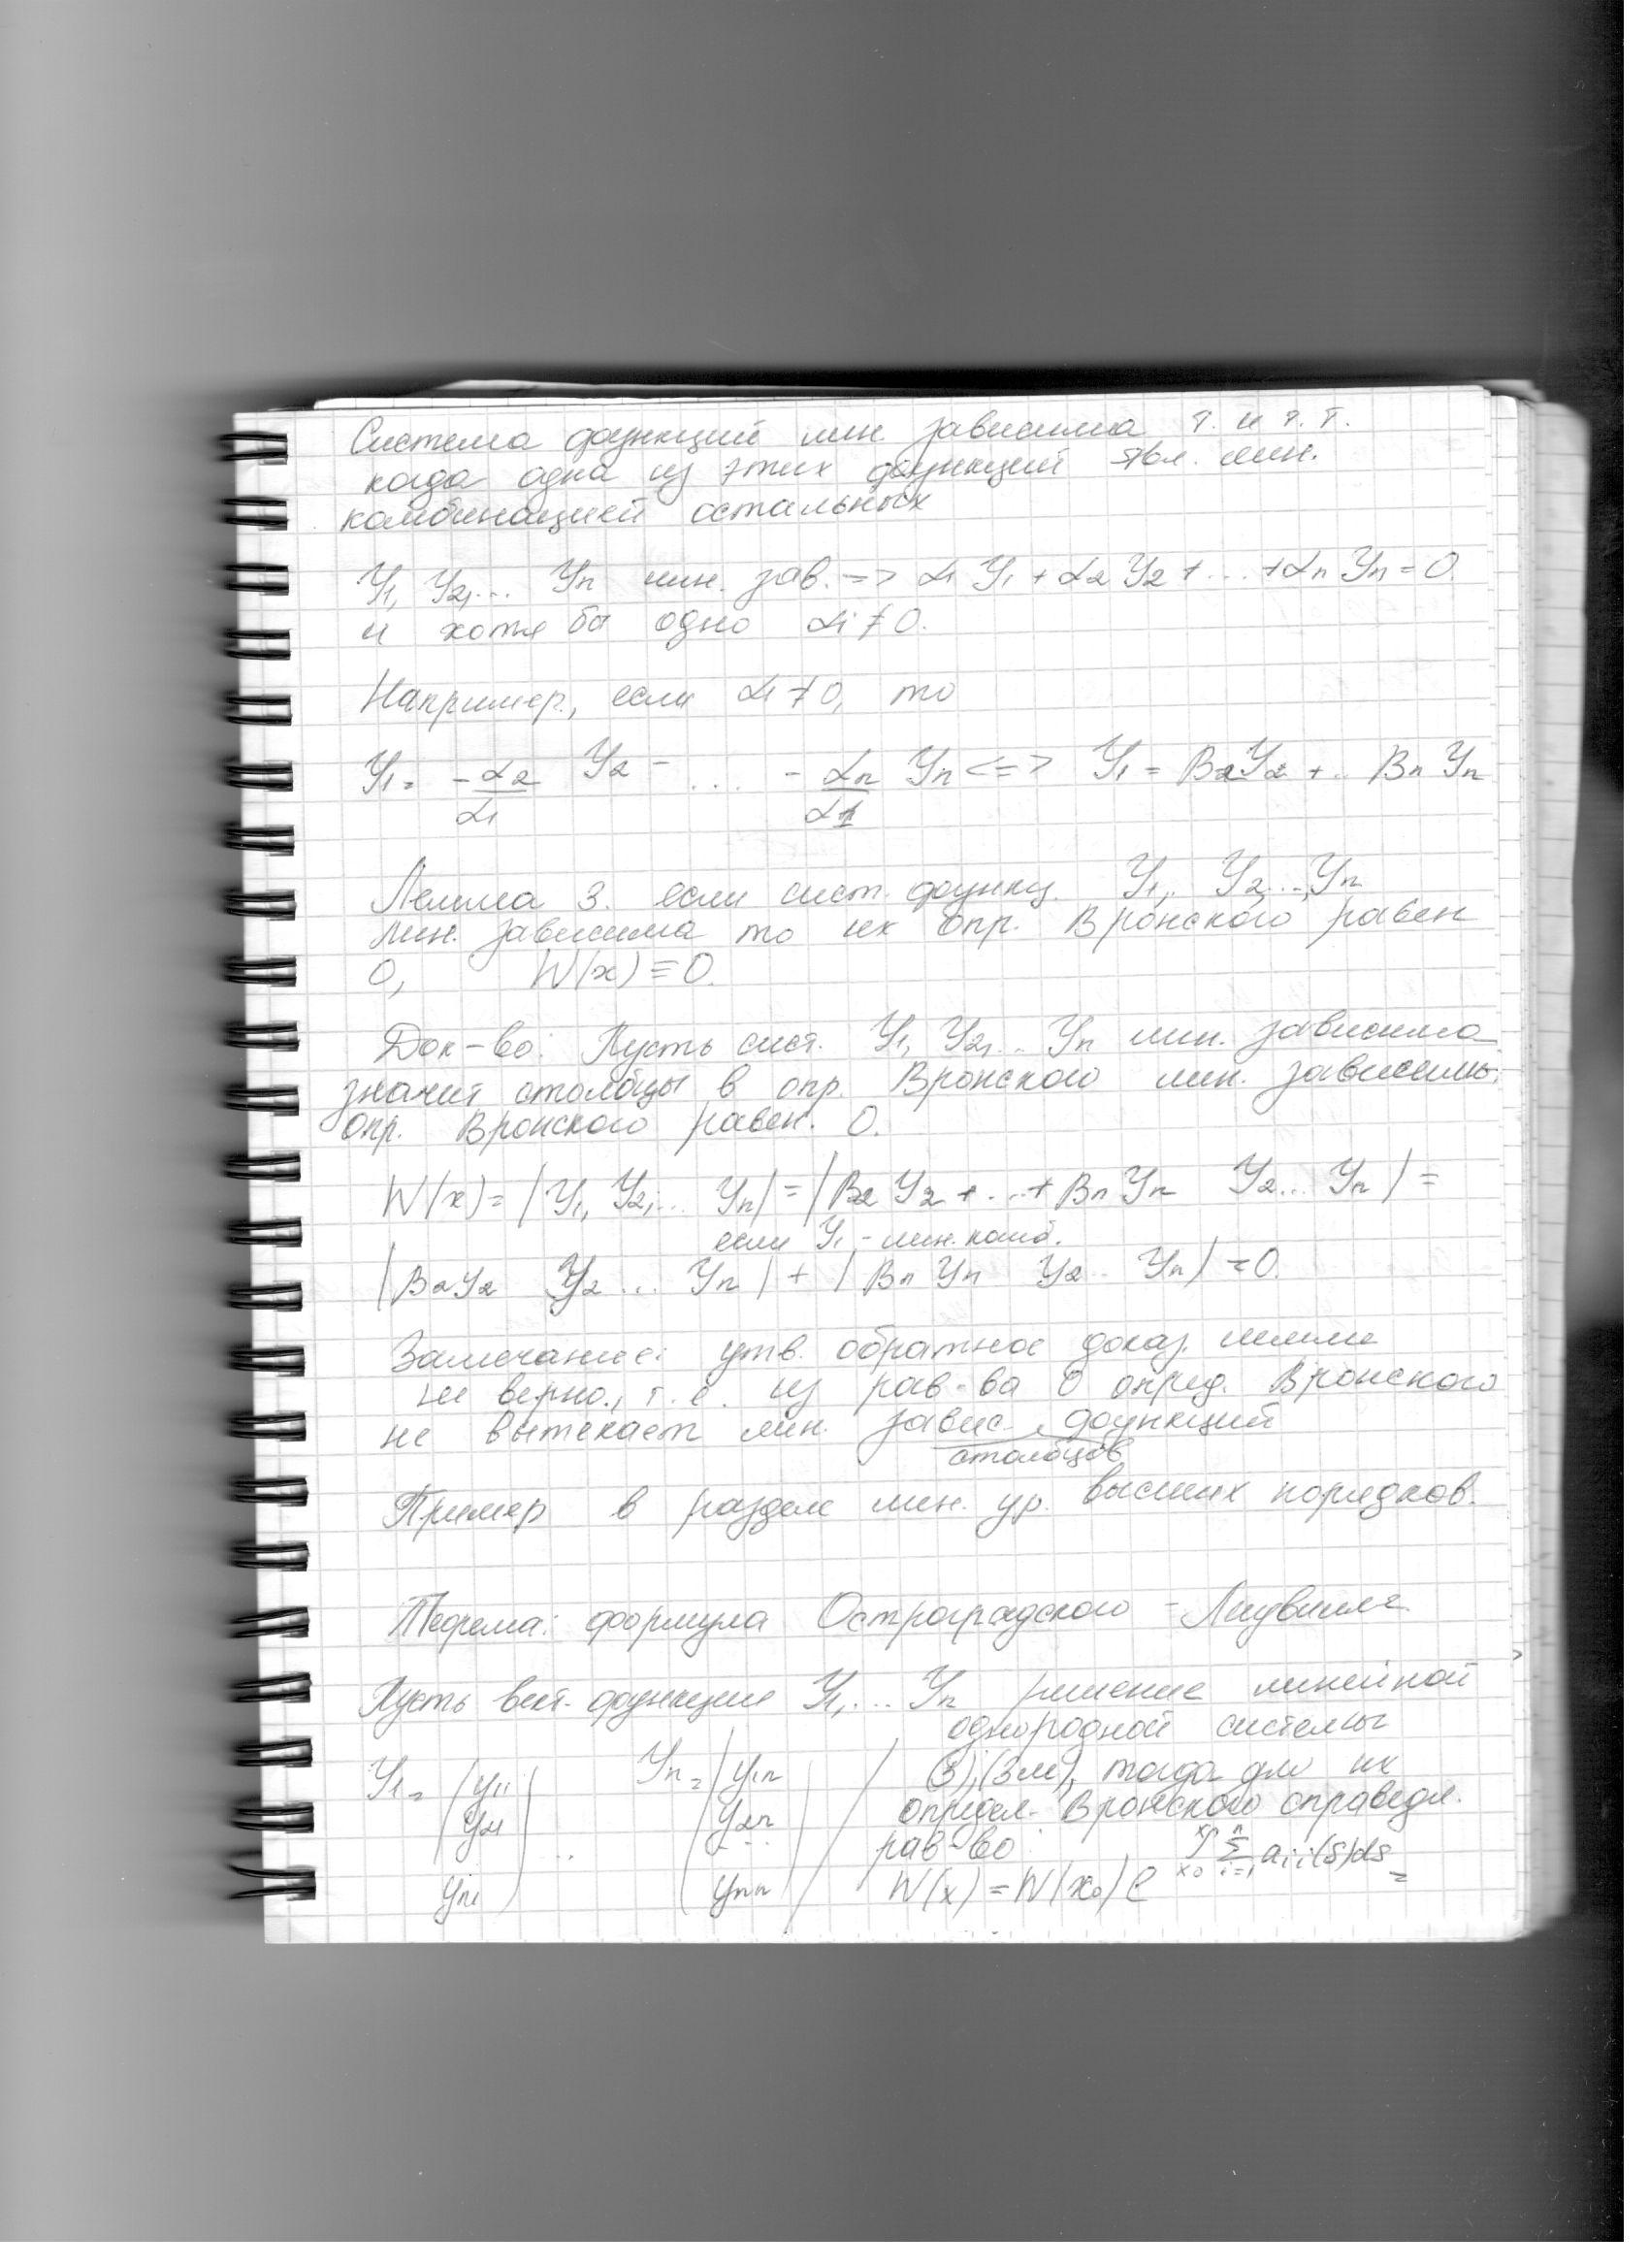 Система функций лин. зависима т. и т. т.
когда одна из этих функций явл. лин.
комбинацией остальных
Y₁, Y₂,... Yn лин. зав. => α₁ Y₁ + α₂ Y₂ + ... + αn Yn = 0.
и хотя бы одно αi ≠ 0.
Например, если α₁ ≠ 0, то
Y₁ = -α₂/α₁ Y₂ - ... - αn/α1 Yn <=> Y₁ = B₂Y₂ + .. Bn Yn
Лемма 3. если сист. функц. Y₁,. Y₂...,Yn
лин. зависима то их опр. Вронского равен
0, W(x) ≡ 0.
Док-во: Пусть сист. Y₁, Y₂,.. Yn лин. зависима
значит столбцы в опр. Вронского лин. зависимы.
опр. Вронского равен. 0.
W(x) = |Y₁, Y₂,... Yn| = |B₂ Y₂ + ... + Bn Yn Y₂... Yn| =
если Y₁ - лин. комб.
|B₂Y₂ Y₂ ... Yn| + |Bn Yn Y₂.. Yn| = 0.
Замечание: утв. обратное доказ. лемме
не верно., т. е. из рав-ва 0 опред. Вронского
не вытекает лин. завис. функций
столбцов
Пример в разделе лин. ур. высших порядков.
Теорема: формула Остроградского - Лиувилля.
Пусть вект. функции Y₁,... Yn решение линейной
однородной системы
Y₁ = (y₁₁ Yn = (y₁n (3),(3м), тогда для их
y₂₁ .. y₂n определ. Вронского справедл.
... рав-во
yn₁) ynn) W(x) = W(x₀) e^∫x₀^x Σi=1^n aii(s)ds =